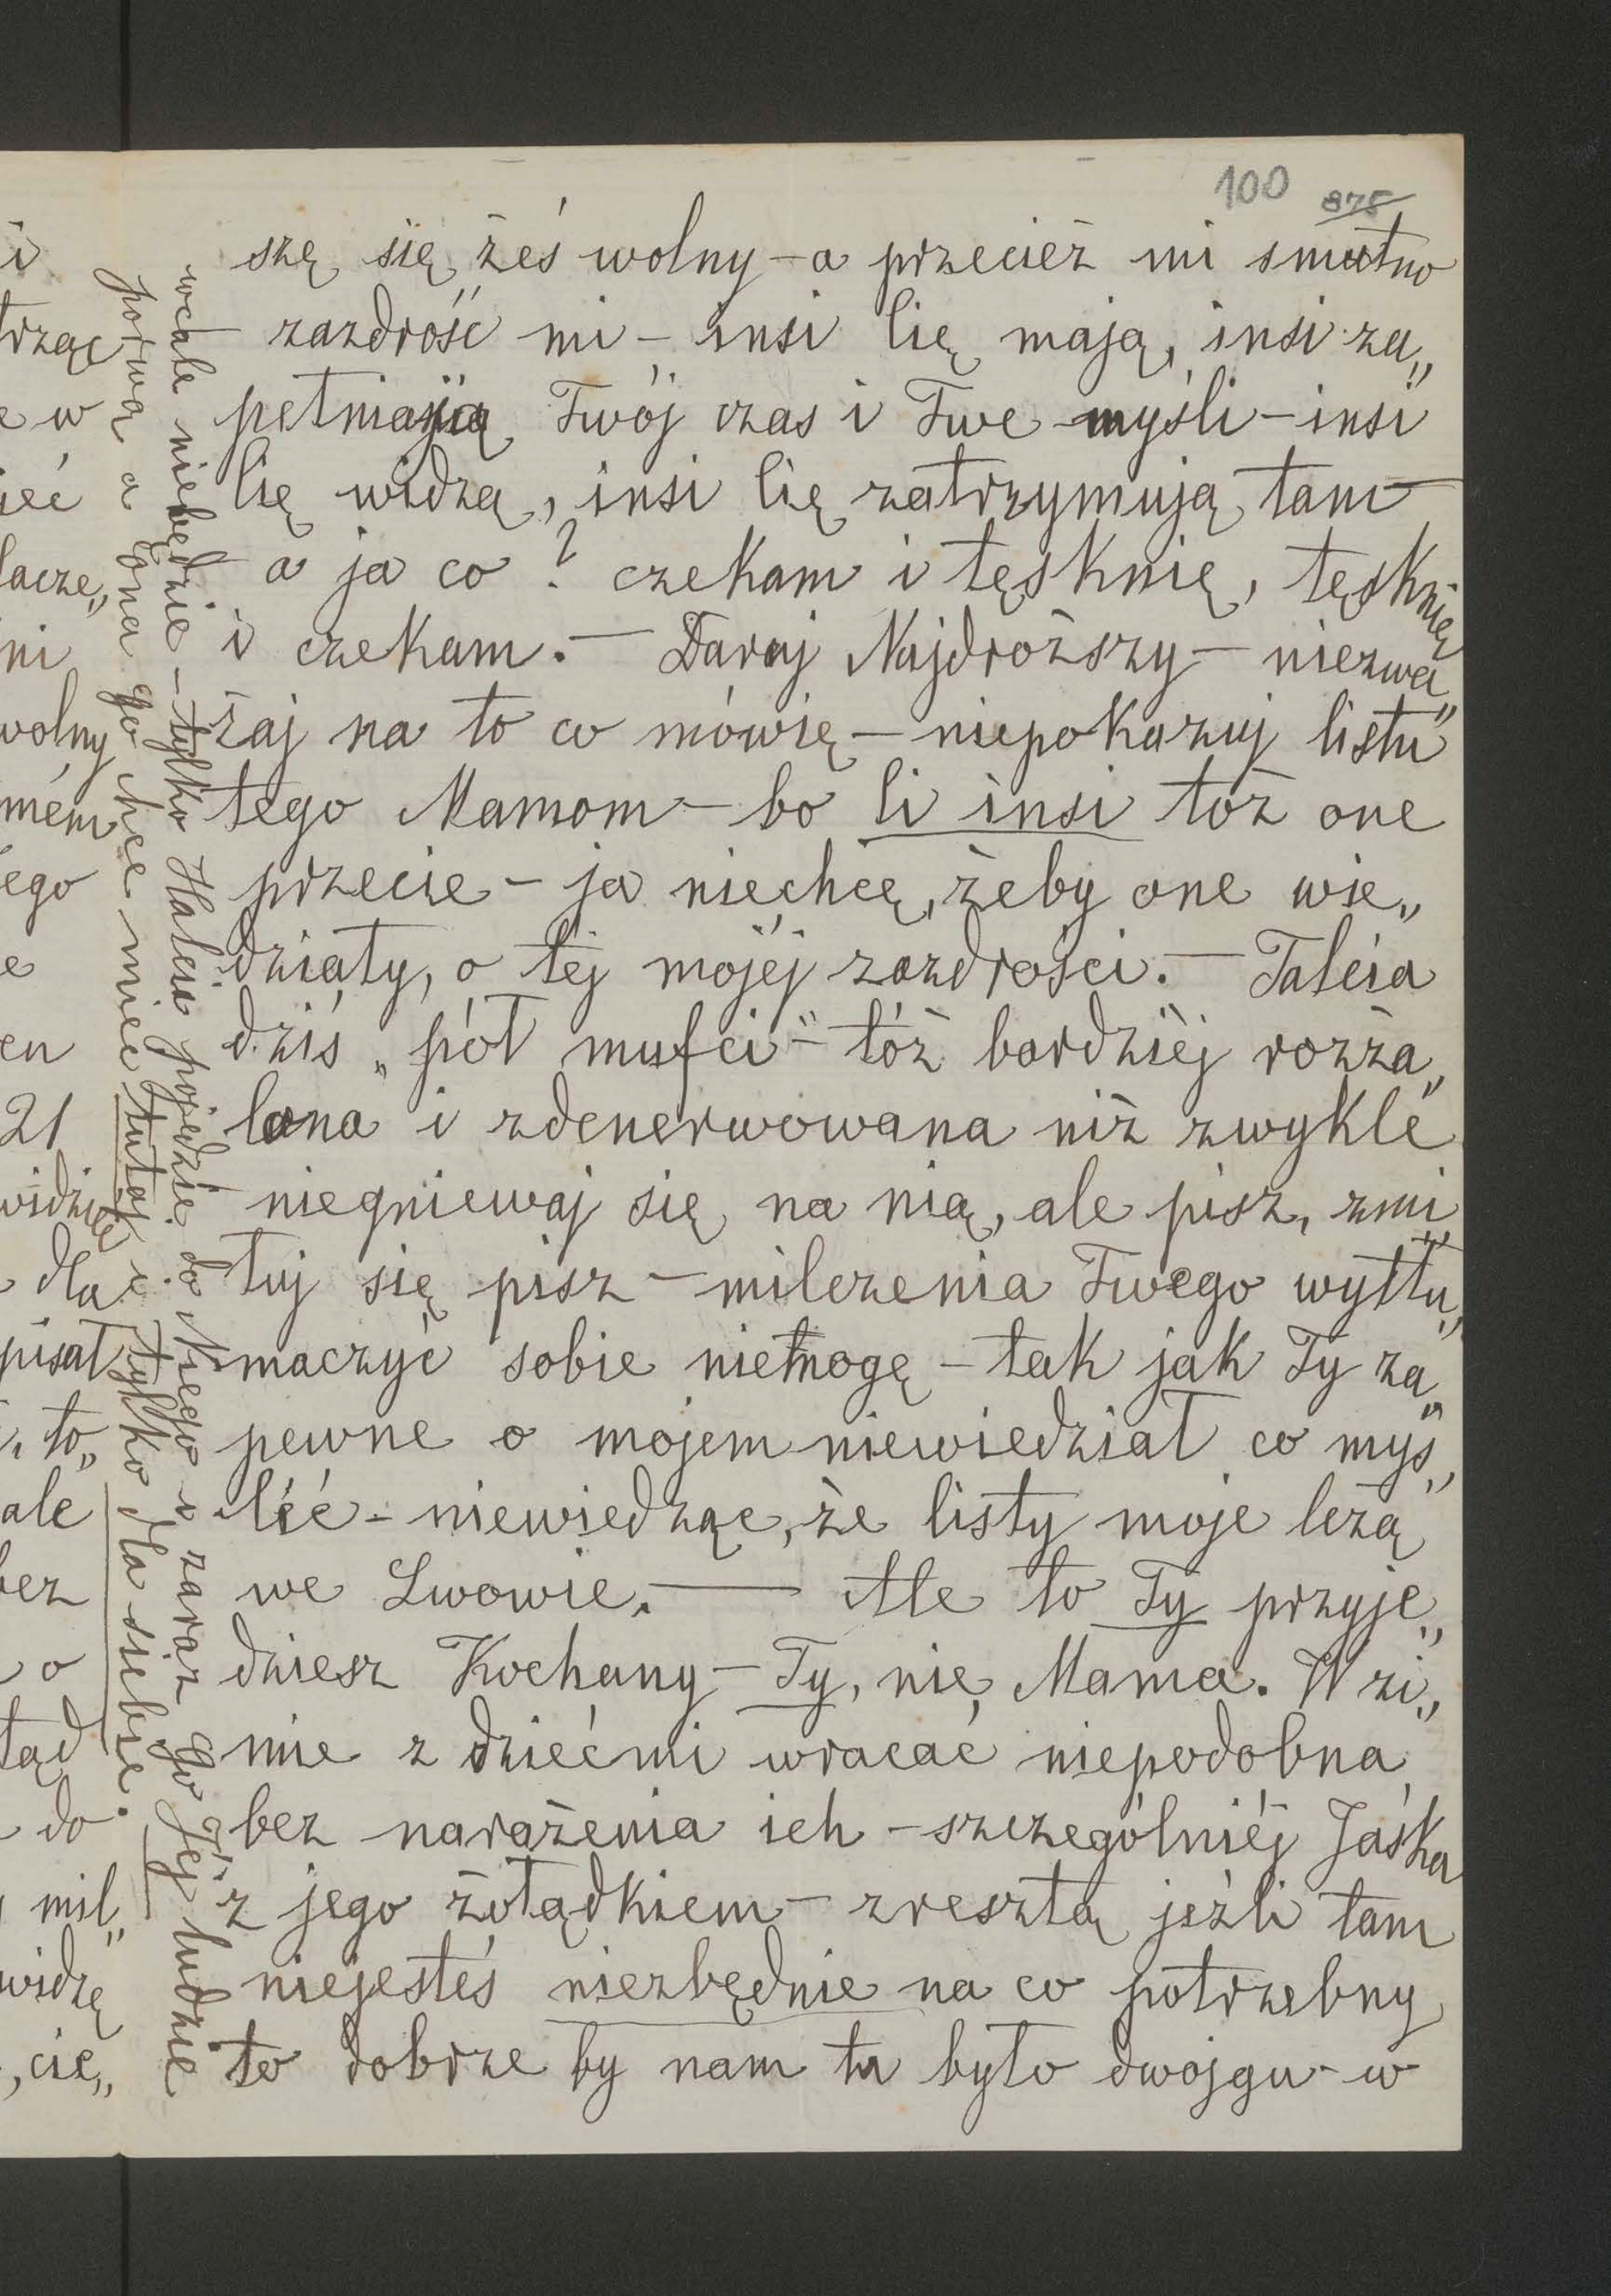 100 875
szę się żeś wolny – a przecież mi smutno
– zazdrość mi – insi Cię mają, insi za„
pełniają Twój czas i Twe myśli – insi
Cię widzą, insi Cię zatrzymują tam –
a ja co? czekam i tęsknię, tęsknię
i czekam. – Daruj Najdroższy – niezwa„
żaj na to co mówię – niepokazuj listu
tego Mamom – bo Ci insi toż one
przecie – ja niechcę, żeby one wie„
działy, o téj mojéj zazdrości. – Talcia
dziś „pół mufci“ – tóż bardziéj rozża„
lona i zdenerwowana niż zwykle
niegniewaj się na nią, ale pisz, zmi„
łuj się pisz – milczenia Twego wytłu„
maczyć sobie niemogę – tak jak Ty za„
pewne o mojem niewiedział co myś„
léć – niewiedząc, że listy moje leżą
we Lwowie. — Ale to Ty przyje„
dziesz Kochany – Ty, nie Mama. W zi„
mie z dziećmi wracać niepodobna
bez narażenia ich – szczególniéj Jaśka
z jego żołądkiem – zresztą jeźli tam
niejesteś niezbędnie na co potrzebny
to dobrze by nam tu było dwojgu – w
wcale niebędzie – tylko Halcia pojedzie do Niego i zaraz go Jéj ludzie
porwą a ona go chce mieć tutaj i tylko dla siebie.
i
trząc
e w
ieć
łacze„
ni
wolny
mém
ego
e
en
21
widzię
dla
pisał
, to„
ale
bez
o
tąd
do
mil„
widzę
, cie„